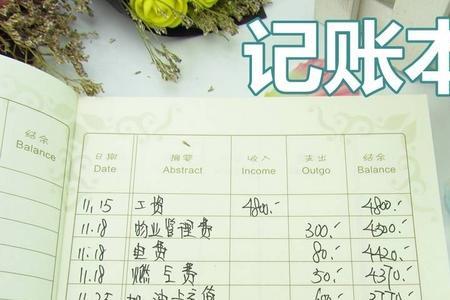 记账本
结余
Balance
日期 摘要 收入 支出 结余
Date Abstract Income Outgo Balance
11.15 工资 4800.- 4800.-
11.18 物业管理费 300.- 4500.-
11.18 电费 80.- 4420.-
11.18 燃气费 50.- 4370.-
11.25 加油卡充值